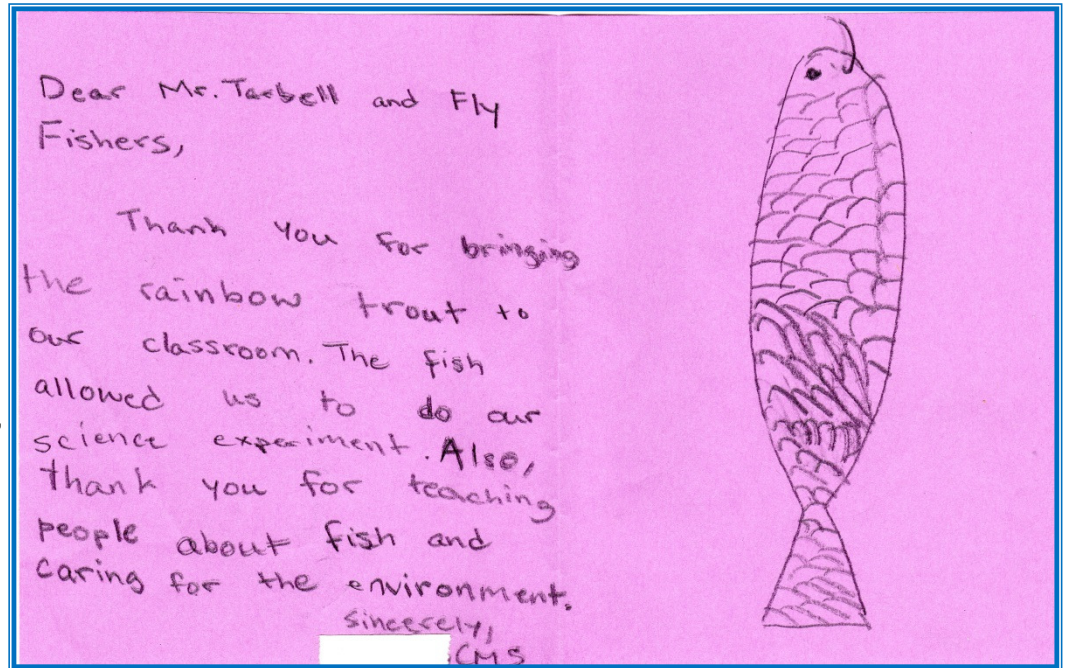 Dear Mr. Tarbell and Fly
Fishers,
Thank you for bringing
the rainbow trout to
our classroom. The fish
allowed us to do our
science experiment. Also,
thank you for teaching
people about fish and
caring for the environment.
sincerely,
CMS